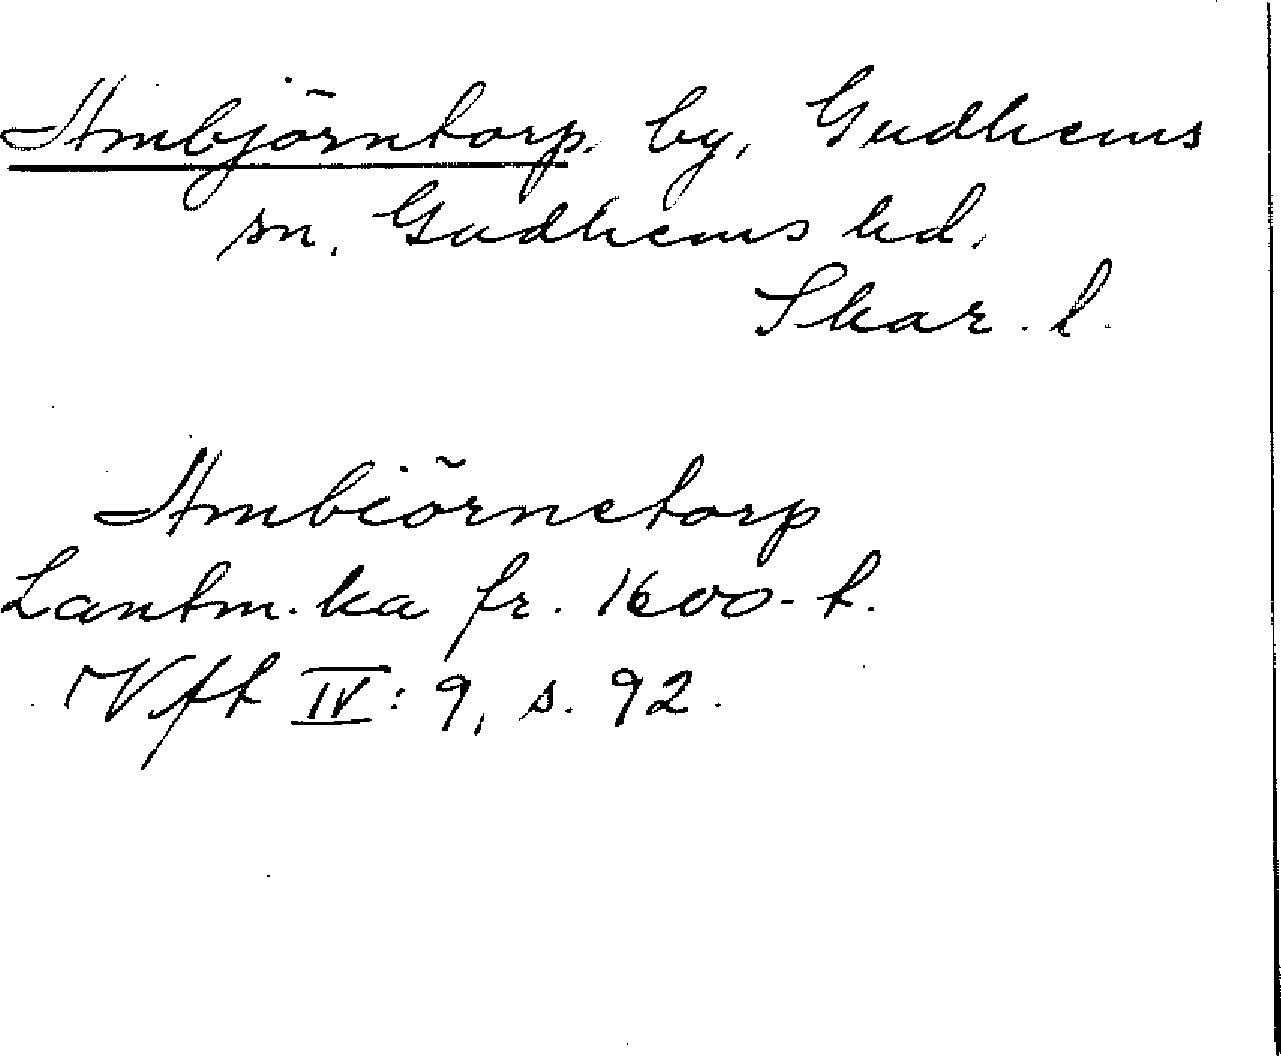 Ambjörntorp, by, Gudhems
sn, Gudhems hd,
Skar. l.
Ambiörnetorp
Lantm. ka fr. 1600-t.
Vft IV: 9, s. 92.